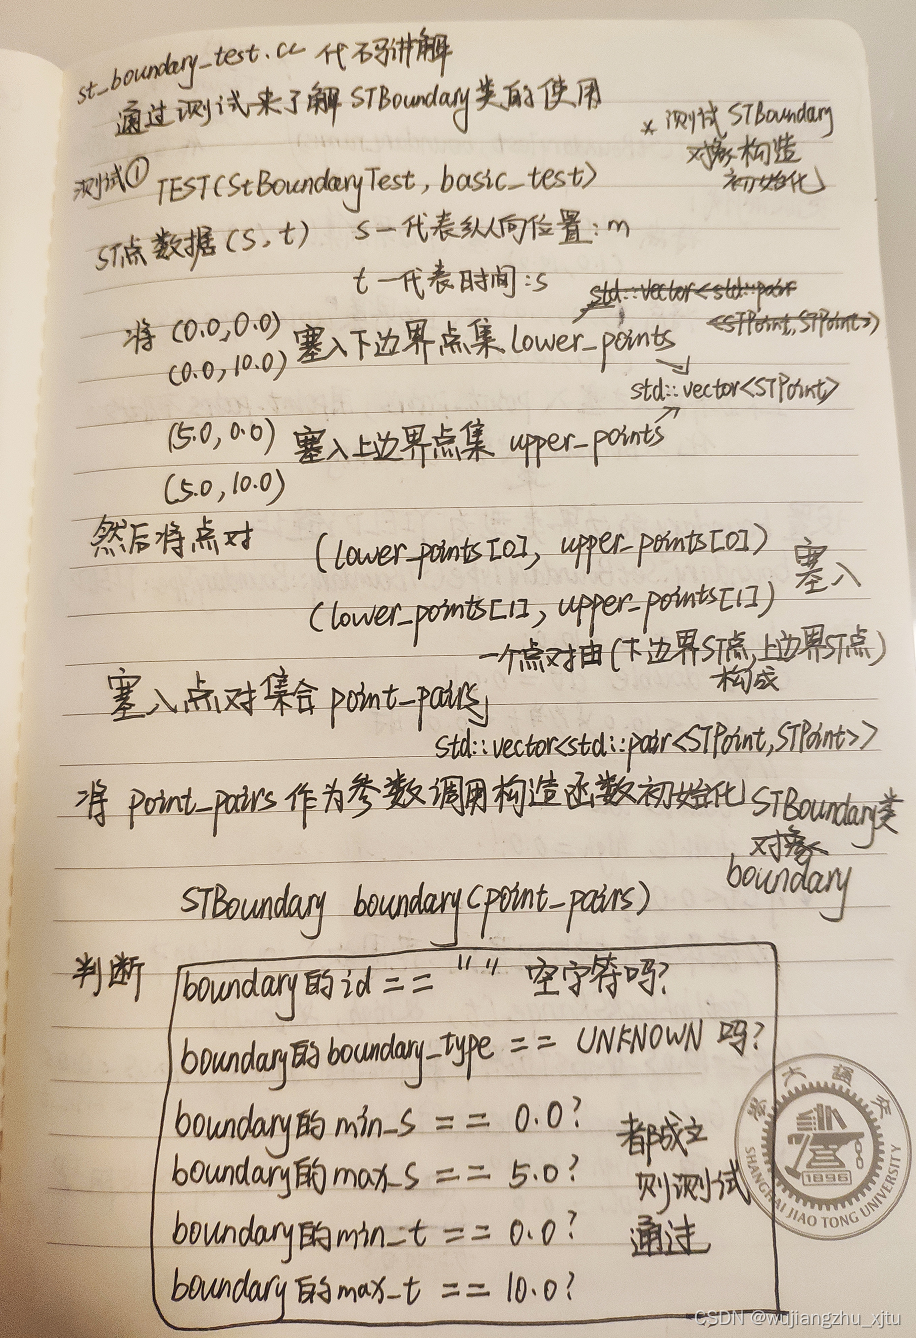 st_boundary_test.cc 代码讲解
通过测试来了解STBoundary类的使用
* 测试STBoundary
对象构造
初始化
测试① TEST(StBoundaryTest, basic_test)
ST点数据(s,t) s—代表纵向位置:m
t—代表时间:s
std::vector<std::pair
<STPoint,STPoint>>
将 (0.0,0.0)
(0.0,10.0) 塞入下边界点集lower_points
std::vector<STPoint>
(5.0,0.0) 塞入上边界点集 upper_points
(5.0,10.0)
然后将点对 (lower_points[0], upper_points[0])
(lower_points[1], upper_points[1]) 塞入
一个点对由(下边界ST点,上边界ST点)
构成
塞入点对集合 point_pairs
std::vector<std::pair<STPoint,STPoint>>
将 point_pairs 作为参数调用构造函数初始化 STBoundary类
对象
boundary
STBoundary boundary(point_pairs)
判断 boundary的id == "" 空字符吗?
boundary的boundary_type == UNKNOWN 吗?
boundary的min_s == 0.0?
boundary的max_s == 5.0?
boundary的min_t == 0.0?
boundary的max_t == 10.0?
都成立
则测试
通过
交通大学
SHANGHAI JIAO TONG UNIVERSITY
1896
CSDN @wujiangzhu_xjtu